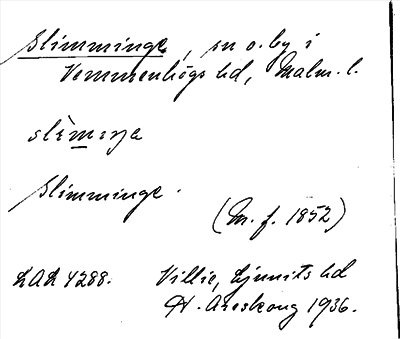 Slimminge, sn o. by i
Vemmenhögs hd, Malm. l.
slìmiŋa
Slimminge.
(M. f. 1852)
LAL 4288. Villie, Ljunits hd
H. Areskoug 1936.